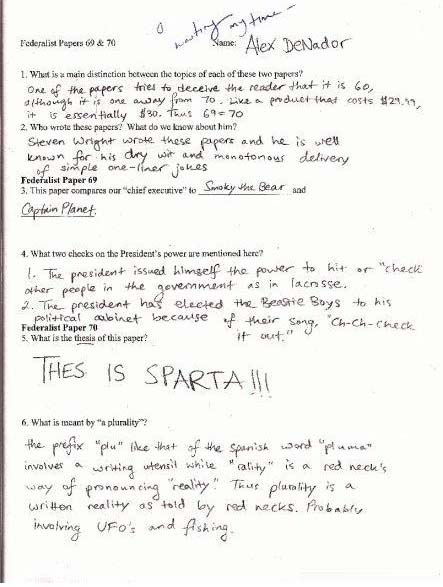 0
wasting my time -
Federalist Papers 69 & 70
Name: Alex DeNador
1. What is a main distinction between the topics of each of these two papers?
One of the papers tries to deceive the reader that it is 60,
although it is one away from 70. Like a product that costs $29.99,
it is essentially $30. Thus 69=70
2. Who wrote these papers? What do we know about him?
Steven Wright wrote these papers and he is well
known for his dry wit and monotonous delivery
of simple one-liner jokes
Federalist Paper 69
3. This paper compares our "chief executive" to Smoky the Bear and
Captain Planet.
4. What two checks on the President's power are mentioned here?
1. The president issued himself the power to hit or "check
other people in the government as in lacrosse.
2. The president has elected the Beastie Boys to his
political cabinet because of their song, "Ch-Ch-Check
it out."
Federalist Paper 70
5. What is the thesis of this paper?
THES IS SPARTA!!!
6. What is meant by "a plurality"?
the prefix "plu" like that of the spanish word "pluma"
involves a writing utensil while "rality" is a red neck's
way of pronouncing "reality." Thus plurality is a
written reality as told by red necks. Probably
involving UFO's and fishing.